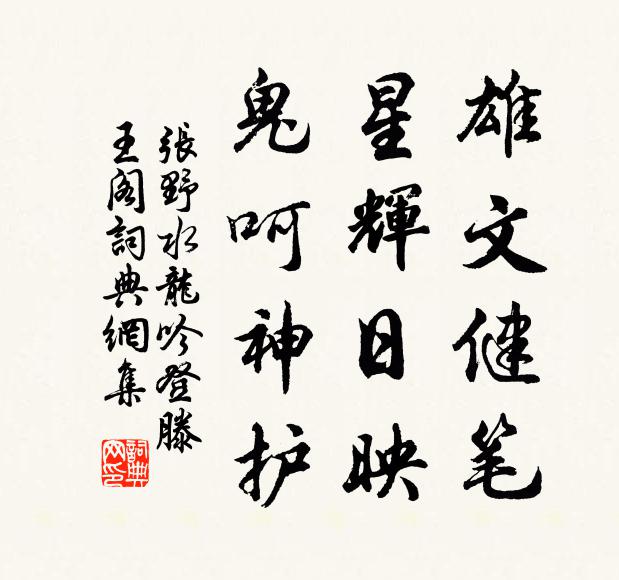 雄文健笔
星輝日映
鬼呵神护
張野水龍吟登滕
王阁詞典網集
詞典
网印